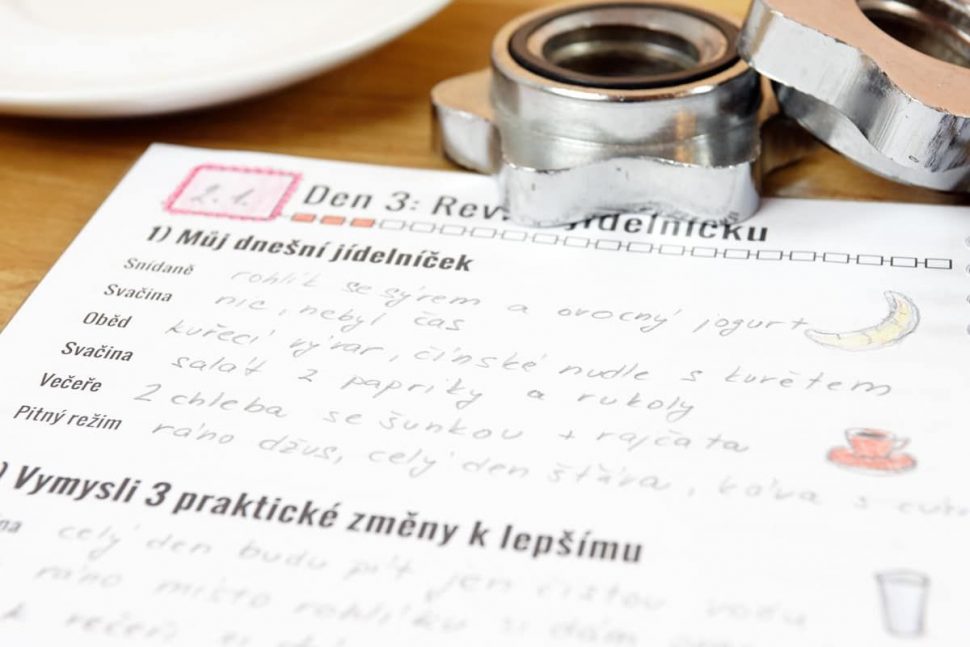 2.1.
Den 3: Rev jídelníčku
1) Můj dnešní jídelníček
Snídaně rohlík se sýrem a ovocný jogurt
Svačina nic, nebyl čas
Oběd kuřecí vývar, čínské nudle s kuřetem
Svačina salát z papriky a rukoly
Večeře 2 chleba se šunkou + rajčata
Pitný režim ráno džus, celý den šťáva, káva s
) Vymysli 3 praktické změny k lepšímu
na celý den budu pít jen čistou vodu
ráno místo rohlíku si dám
k večeři si